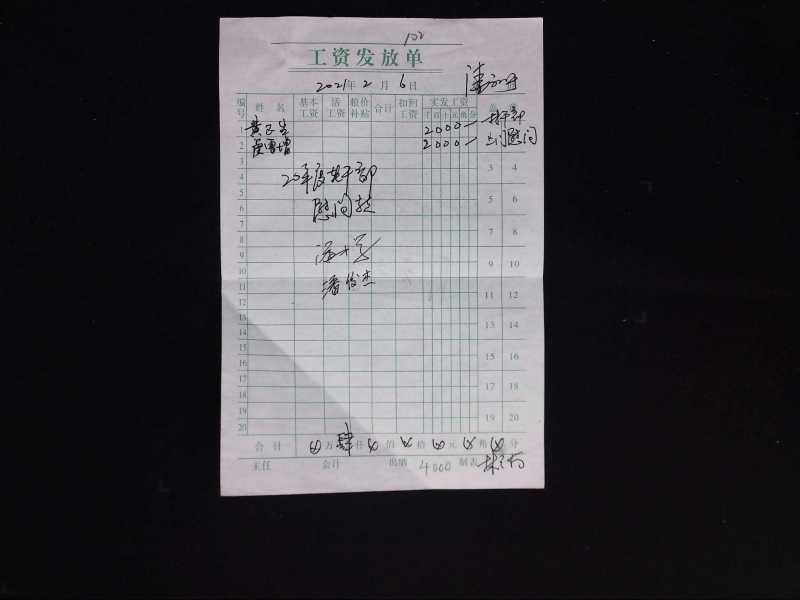 102
工资发放单
2021年2月6日
编号 姓名 基本工资 活工资 粮价补贴 合计 扣回工资 实发工资 盖章
千 百 十 元 角 分
1 黄 生 2000— 村干部
2 增 2000— 上门慰问
3 3 4
4 20年度老干部
5 5 6
6 慰问款
7 7 8
8
9 9 10
10 潘俊杰
11 11 12
12
13 13 14
14
15 15 16
16
17 17 18
18
19 19 20
20
合计 万 肆仟 佰 拾 元 角 分
主任 会计 出纳 4000 制表